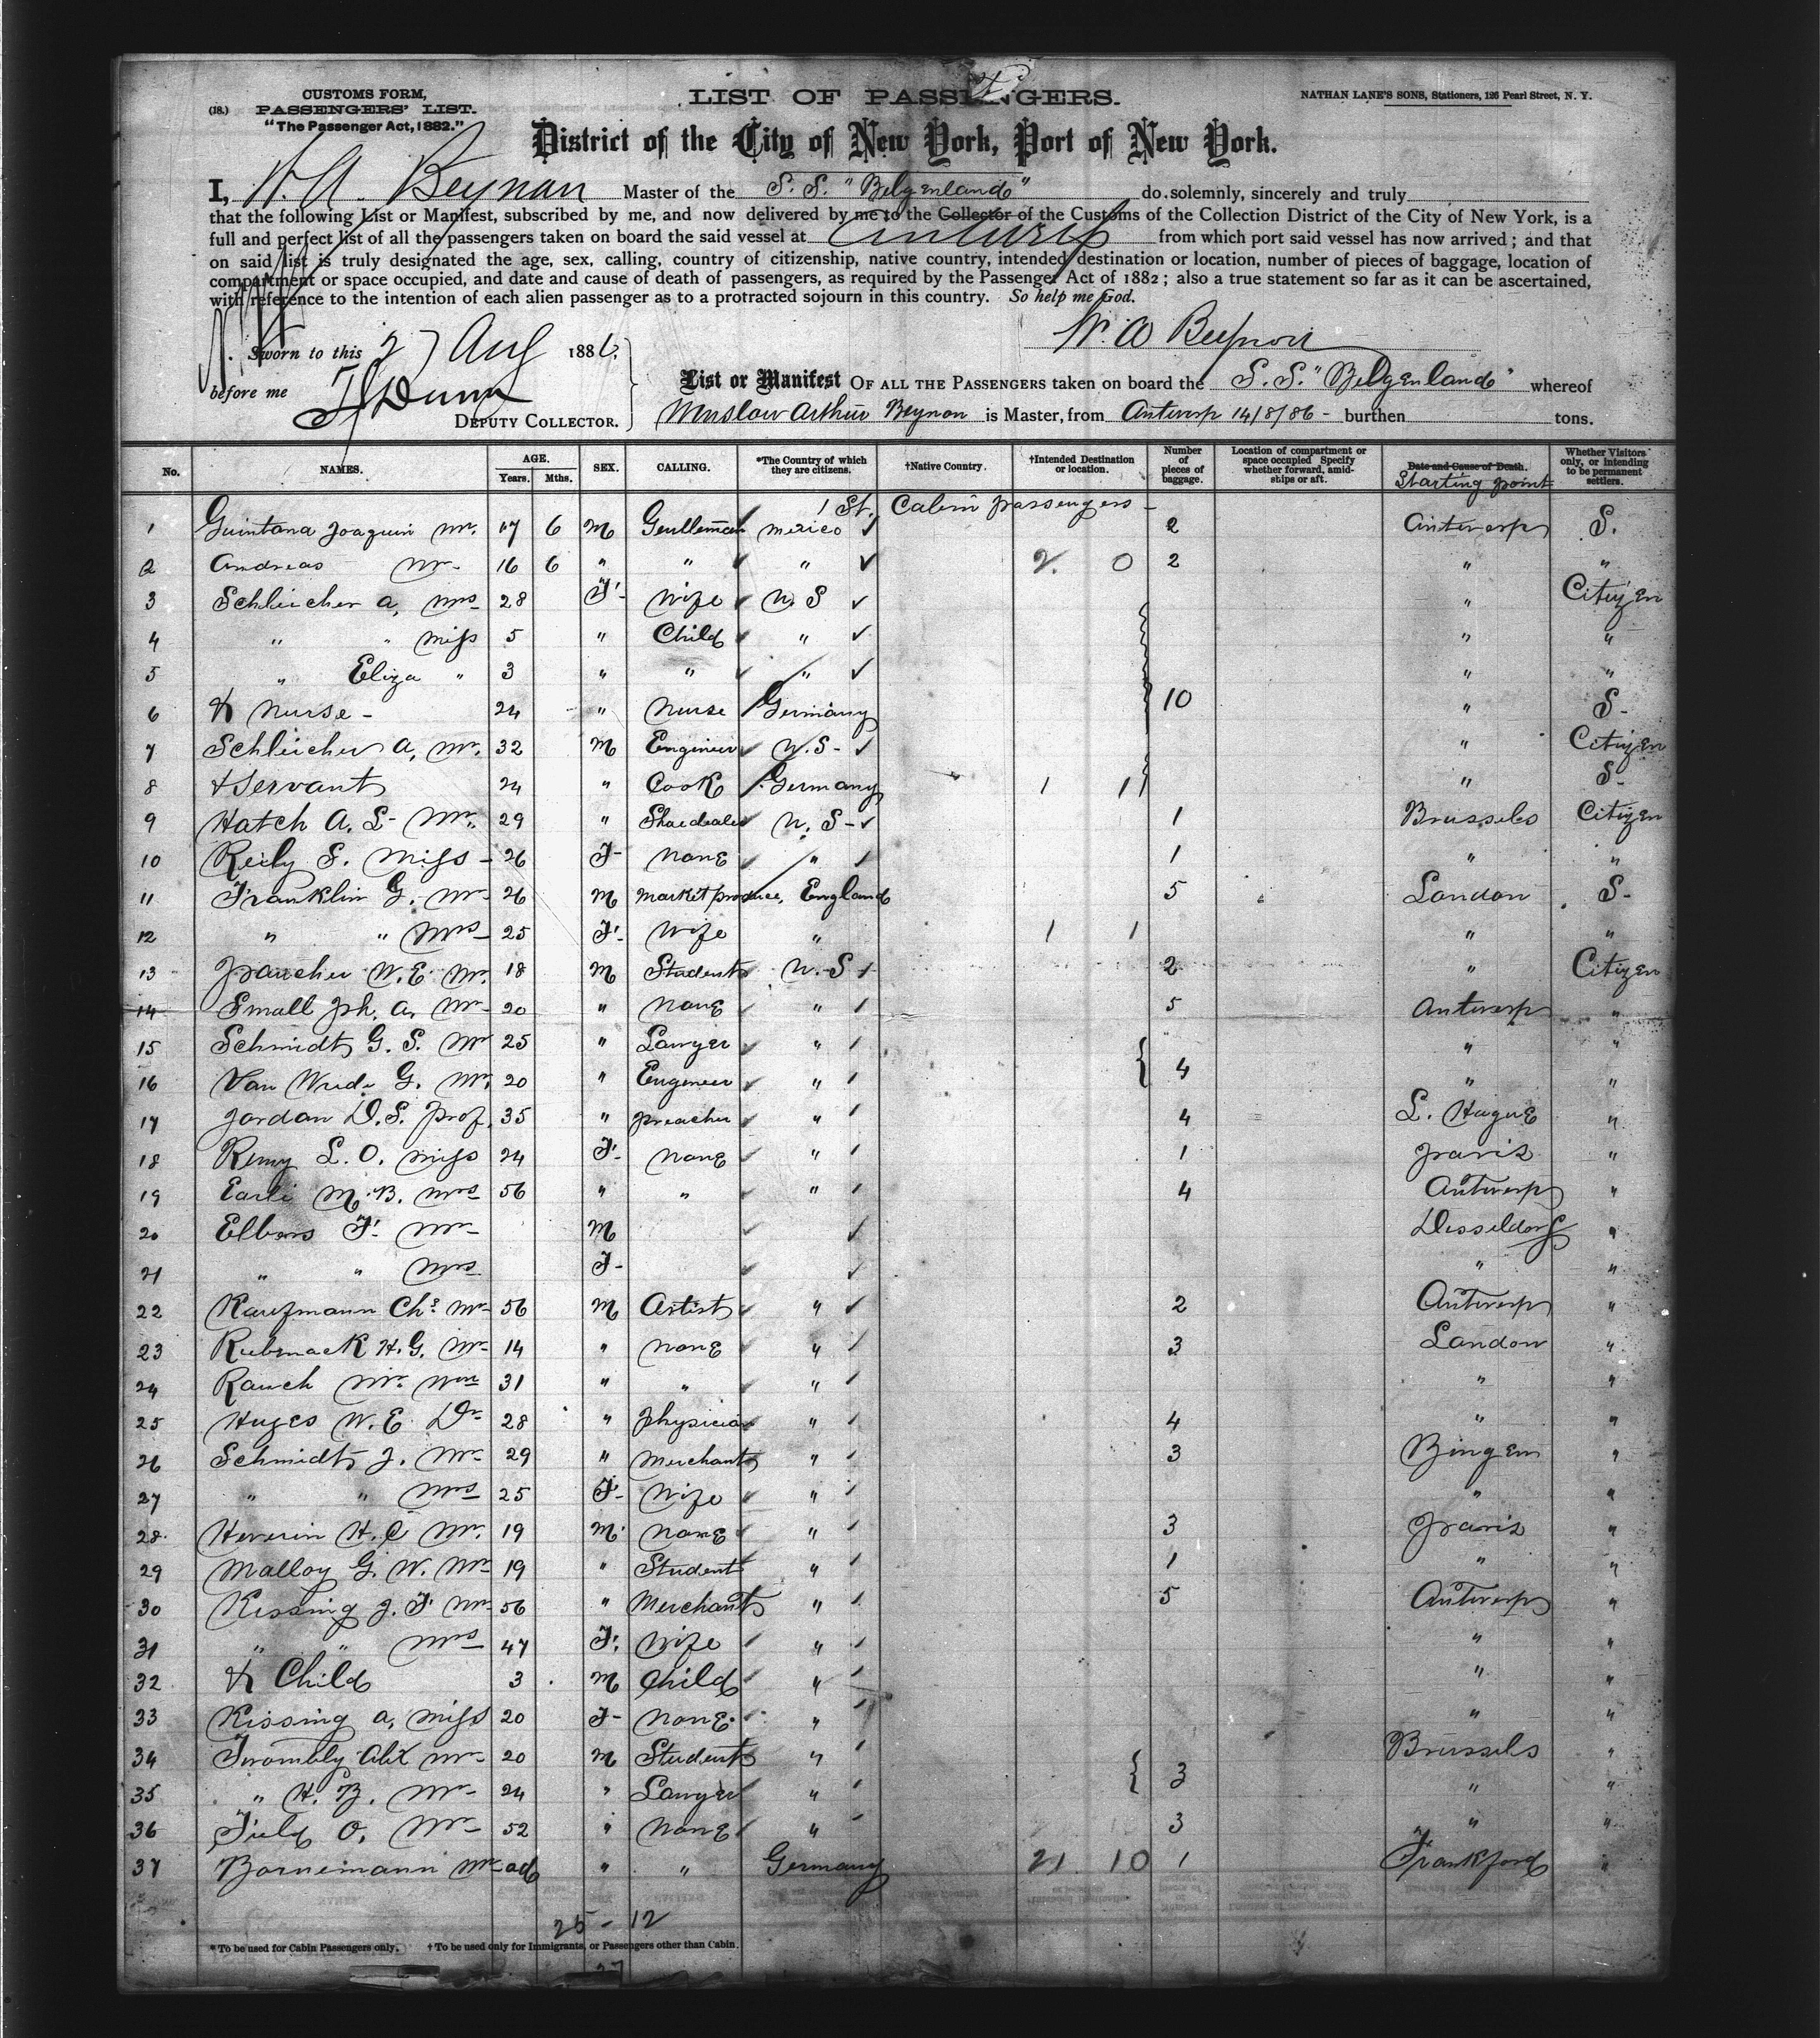 (18.) CUSTOMS FORM,
PASSENGERS' LIST.
"The Passenger Act, 1882."
LIST OF PASSENGERS.
NATHAN LANE'S SONS, Stationers, 126 Pearl Street, N. Y.
District of the City of New York, Port of New York.
I, W. A. Beynon Master of the S. S. "Belgenland" do solemnly, sincerely and truly
that the following List or Manifest, subscribed by me, and now delivered by me to the Collector of the Customs of the Collection District of the City of New York, is a
full and perfect list of all the passengers taken on board the said vessel at Antwerp from which port said vessel has now arrived; and that
on said list is truly designated the age, sex, calling, country of citizenship, native country, intended destination or location, number of pieces of baggage, location of
compartment or space occupied, and date and cause of death of passengers, as required by the Passenger Act of 1882; also a true statement so far as it can be ascertained,
with reference to the intention of each alien passenger as to a protracted sojourn in this country. So help me God.
W. A. Beynon
Sworn to this 27 Aug 1886.
before me
DEPUTY COLLECTOR.
List or Manifest OF ALL THE PASSENGERS taken on board the S. S. "Belgenland" whereof
Winslow Arthur Beynon is Master, from Antwerp 14/8/86 - burthen tons.
No. NAMES. AGE. Years. Mths. SEX. CALLING. *The Country of which they are citizens. †Native Country. †Intended Destination or location. Number of pieces of baggage. Location of compartment or space occupied Specify whether forward, amidships or aft. Date and Cause of Death. Starting point Whether Visitors only, or intending to be permanent settlers.
1 St. Cabin passengers -
1 Quintana Joaquin Mr. 17 6 M Gentleman Mexico 2 Antwerp S.
2 Andreas Mr. 16 6 " " " 2 0 2 " "
3 Schleicher A. Mrs 28 F. Wife U. S " Citizen
4 " " Miss 5 " Child " " "
5 " Eliza " 3 " " " " "
6 & Nurse - 24 " Nurse Germany 10 " S-
7 Schleicher A. Mr. 32 M Engineer U. S- " Citizen
8 & Servant 24 " Cook Germany 1 1 " S-
9 Hatch A. S- Mr. 29 " Shoedealer U. S- 1 Brussels Citizen
10 Reily S. Miss - 26 F- None " 1 " "
11 Franklin G. Mr- 26 M Market produce, England 5 London S-
12 " " Mrs 25 F. Wife " 1 1 " "
13 W. E. Mr. 18 M Student U. S 2 " Citizen
14 Small Jph. A. Mr- 20 " None " 5 Antwerp "
15 Schmidt G. S. Mr 25 " Lawyer " " "
16 Van G. Mr. 20 " Engineer " 4 " "
17 Jordan D. S. Prof. 35 " Preacher " 4 L. Hague "
18 Remy L. O. Miss 24 F- None " 1 Paris "
19 Earle M. B. Mrs 56 " " " 4 Antwerp "
20 Elbers F. Mr- M Disseldorf "
21 " " Mrs F- " "
22 Kaufmann Chs Mr- 56 M Artist " 2 Antwerp "
23 H. G. Mr- 14 " None " 3 London "
24 Rauch Mr. Wm 31 " " " " "
25 Huges W. E. Dr 28 " Physician " 4 " "
26 Schmidt J. Mr- 29 " Merchant " 3 Bingen "
27 " " Mrs 25 F- Wife " " "
28 Heverin H. C Mr. 19 M. None " 3 Paris "
29 Malloy G. W. Mr 19 " Student " 1 " "
30 Kissing J. F. Mr 56 " Merchant " 5 Antwerp "
31 " " Mrs 47 F. Wife " " "
32 & Child 3 M Child " " "
33 Kissing A. Miss 20 F- None " " "
34 Twombly Alex Mr- 20 M Student " Brussels "
35 " H. B. Mr- 24 " Lawyer " 3 " "
36 O. Mr- 52 " None " 3 " "
37 Bornemann Mr ad " " Germany 21 10 1 Frankford "
25 - 12
* To be used for Cabin Passengers only. † To be used only for Immigrants, or Passengers other than Cabin.
37